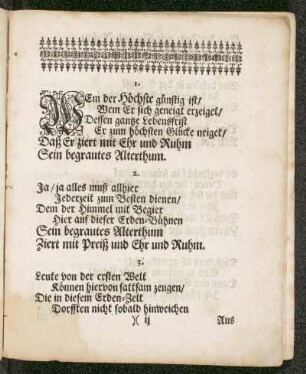 1.
WEm der Höchste günstig ist/
Wem Er sich geneigt erzeiget/
Dessen gantze Lebensfrist
Er zum höchsten Glücke neiget/
Daß Er ziert mit Ehr und Ruhm
Sein begrautes Alterthum.
2.
Ja/ ja alles muß allhier
Jederzeit zum Besten dienen/
Dem der Himmel mit Begier
Hier auf dieser Erden-Bühnen
Sein begrautes Alterthum
Ziert mit Preiß und Ehr und Ruhm.
3.
Leute von der ersten Welt
Können hiervon sattsam zeugen/
Die in diesem Erden-Zelt
Dorfften nicht sobald hinweichen
)( ij Aus